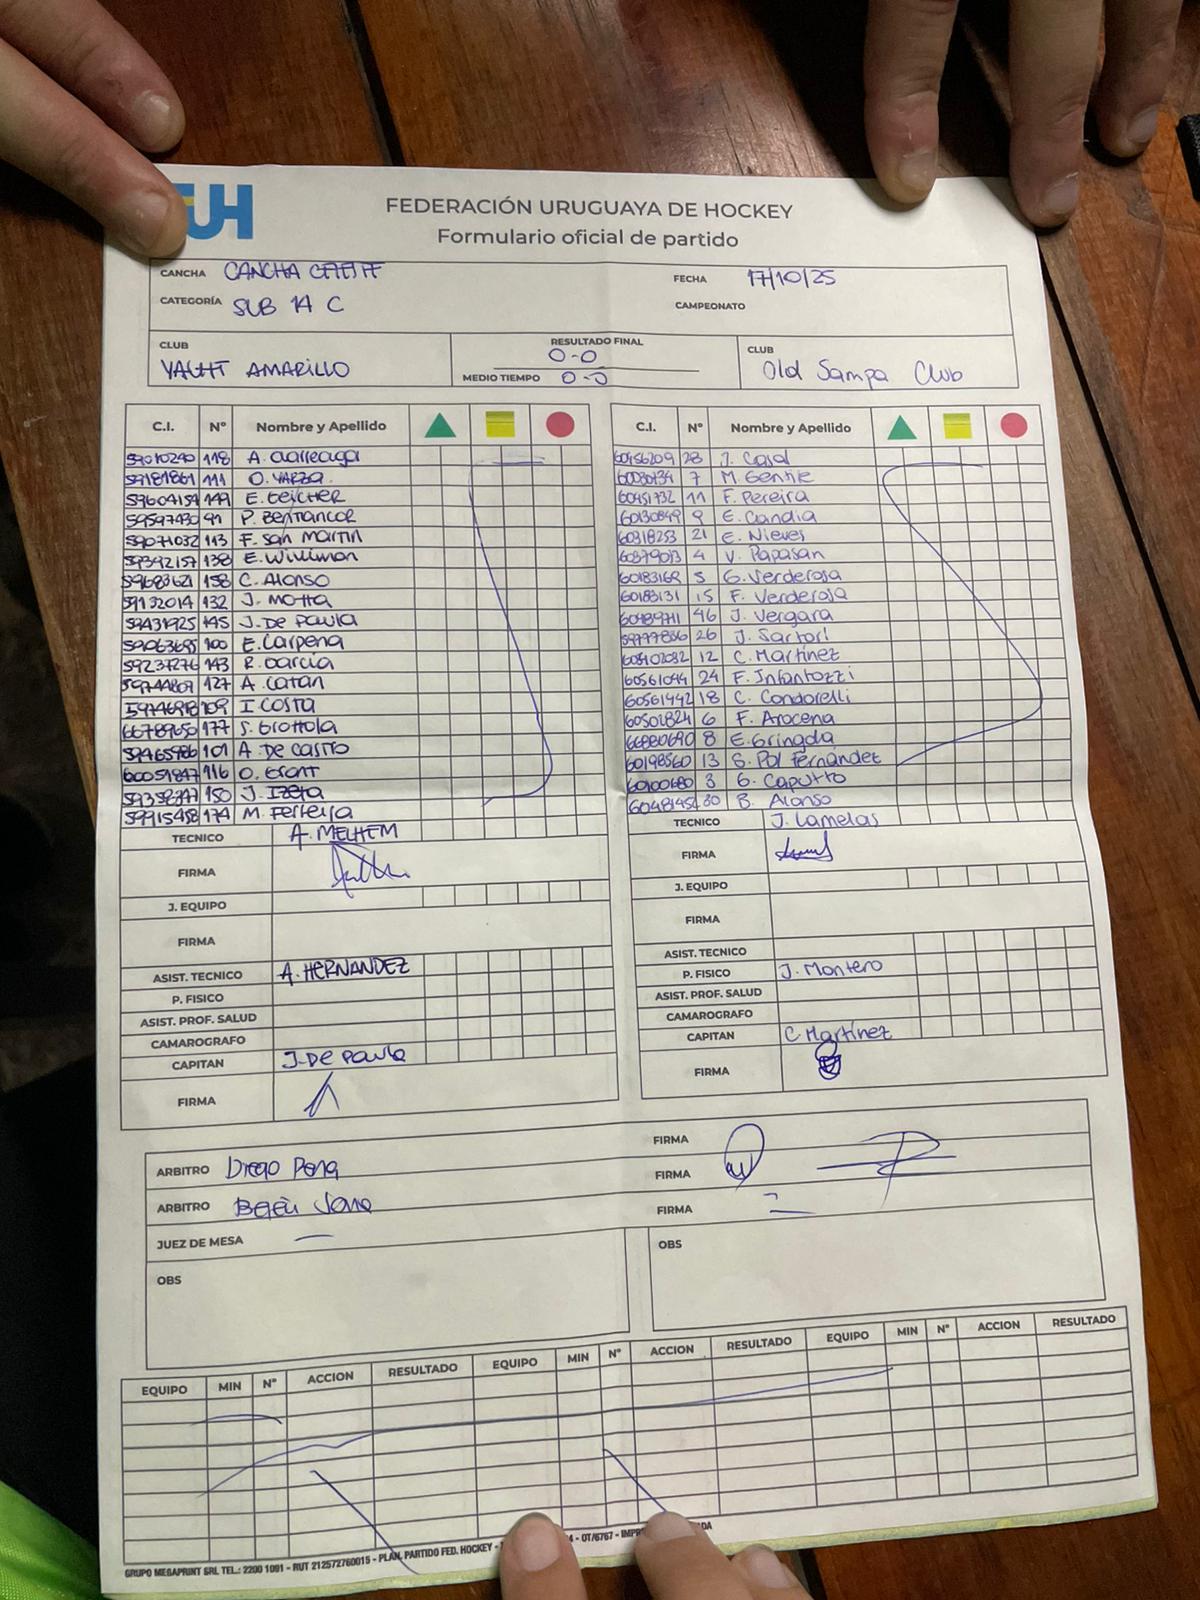 UH
FEDERACIÓN URUGUAYA DE HOCKEY
Formulario oficial de partido
CANCHA CANCHA
FECHA 17/10/25
CATEGORÍA SUB 14 C
CAMPEONATO
CLUB
YACHT AMARILLO
RESULTADO FINAL
0-0
MEDIO TIEMPO 0-0
CLUB
Old Sampa Club
C.I. N° Nombre y Apellido
118 A. Larreaga
59181861 111 O. YARZA
59604159 149 E. Leicher
59597430 91 P. BENTANCOR
59071032 113 F. San MARTIN
59392157 138 E. Williman
59683621 158 C. ALONSO
59132014 132 J. Motta
59431925 145 J. De PAULA
59063695 100 E. Carpena
59237276 143 R. Garcia
127 A. CATAN
109 I. COSTA
66789650 177 S. Grottola
59465986 101 A. De CASTRO
60051847 116 O. Grant
150 J. Izeta
59915458 174 M. Ferreira
TECNICO A. MELHEM
FIRMA
J. EQUIPO
FIRMA
ASIST. TECNICO A. HERNANDEZ
P. FISICO
ASIST. PROF. SALUD
CAMAROGRAFO
CAPITAN J. De Paula
FIRMA
C.I. N° Nombre y Apellido
60456209 28 J. Casal
7 M. Gentile
60451732 11 F. Pereira
60130849 9 E. Candia
60318253 21 E. Nieves
60379013 4 V. Papasan
60183168 5 G. Verderosa
60183131 15 F. Verderosa
60489711 46 J. Vergara
59777856 26 J. Sartori
12 C. Martinez
60561044 24 F. Infantozzi
60561442 18 C. Condorelli
60502824 6 F. Arocena
66880690 8 E. Gringda
60198560 13 S. Pol Fernández
60100680 3 G. Caputto
B. Alonso
TECNICO J. Lamelas
FIRMA
J. EQUIPO
FIRMA
ASIST. TECNICO
P. FISICO J. Montero
ASIST. PROF. SALUD
CAMAROGRAFO
CAPITAN C. Martínez
FIRMA
ARBITRO Diego Pena
FIRMA
ARBITRO Belén
FIRMA
JUEZ DE MESA —
FIRMA
OBS
OBS
EQUIPO MIN N° ACCION RESULTADO EQUIPO MIN N° ACCION RESULTADO EQUIPO MIN N° ACCION RESULTADO
GRUPO MEGAPRINT SRL TEL.: 2200 1091 - RUT 212572760015 - PLAN. PARTIDO FED. HOCKEY - - OT/6767 -